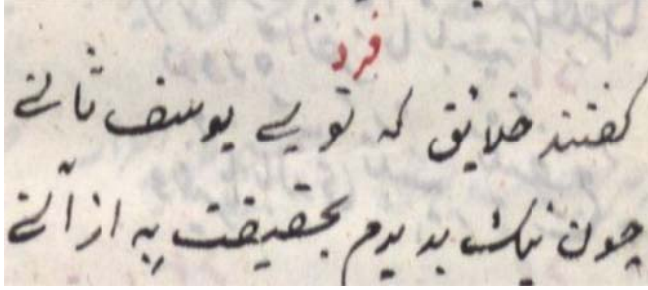 فرد
گفتند خلایق که تویی یوسف ثانی
چون نیک بدیدم بحقیقت به از آنی